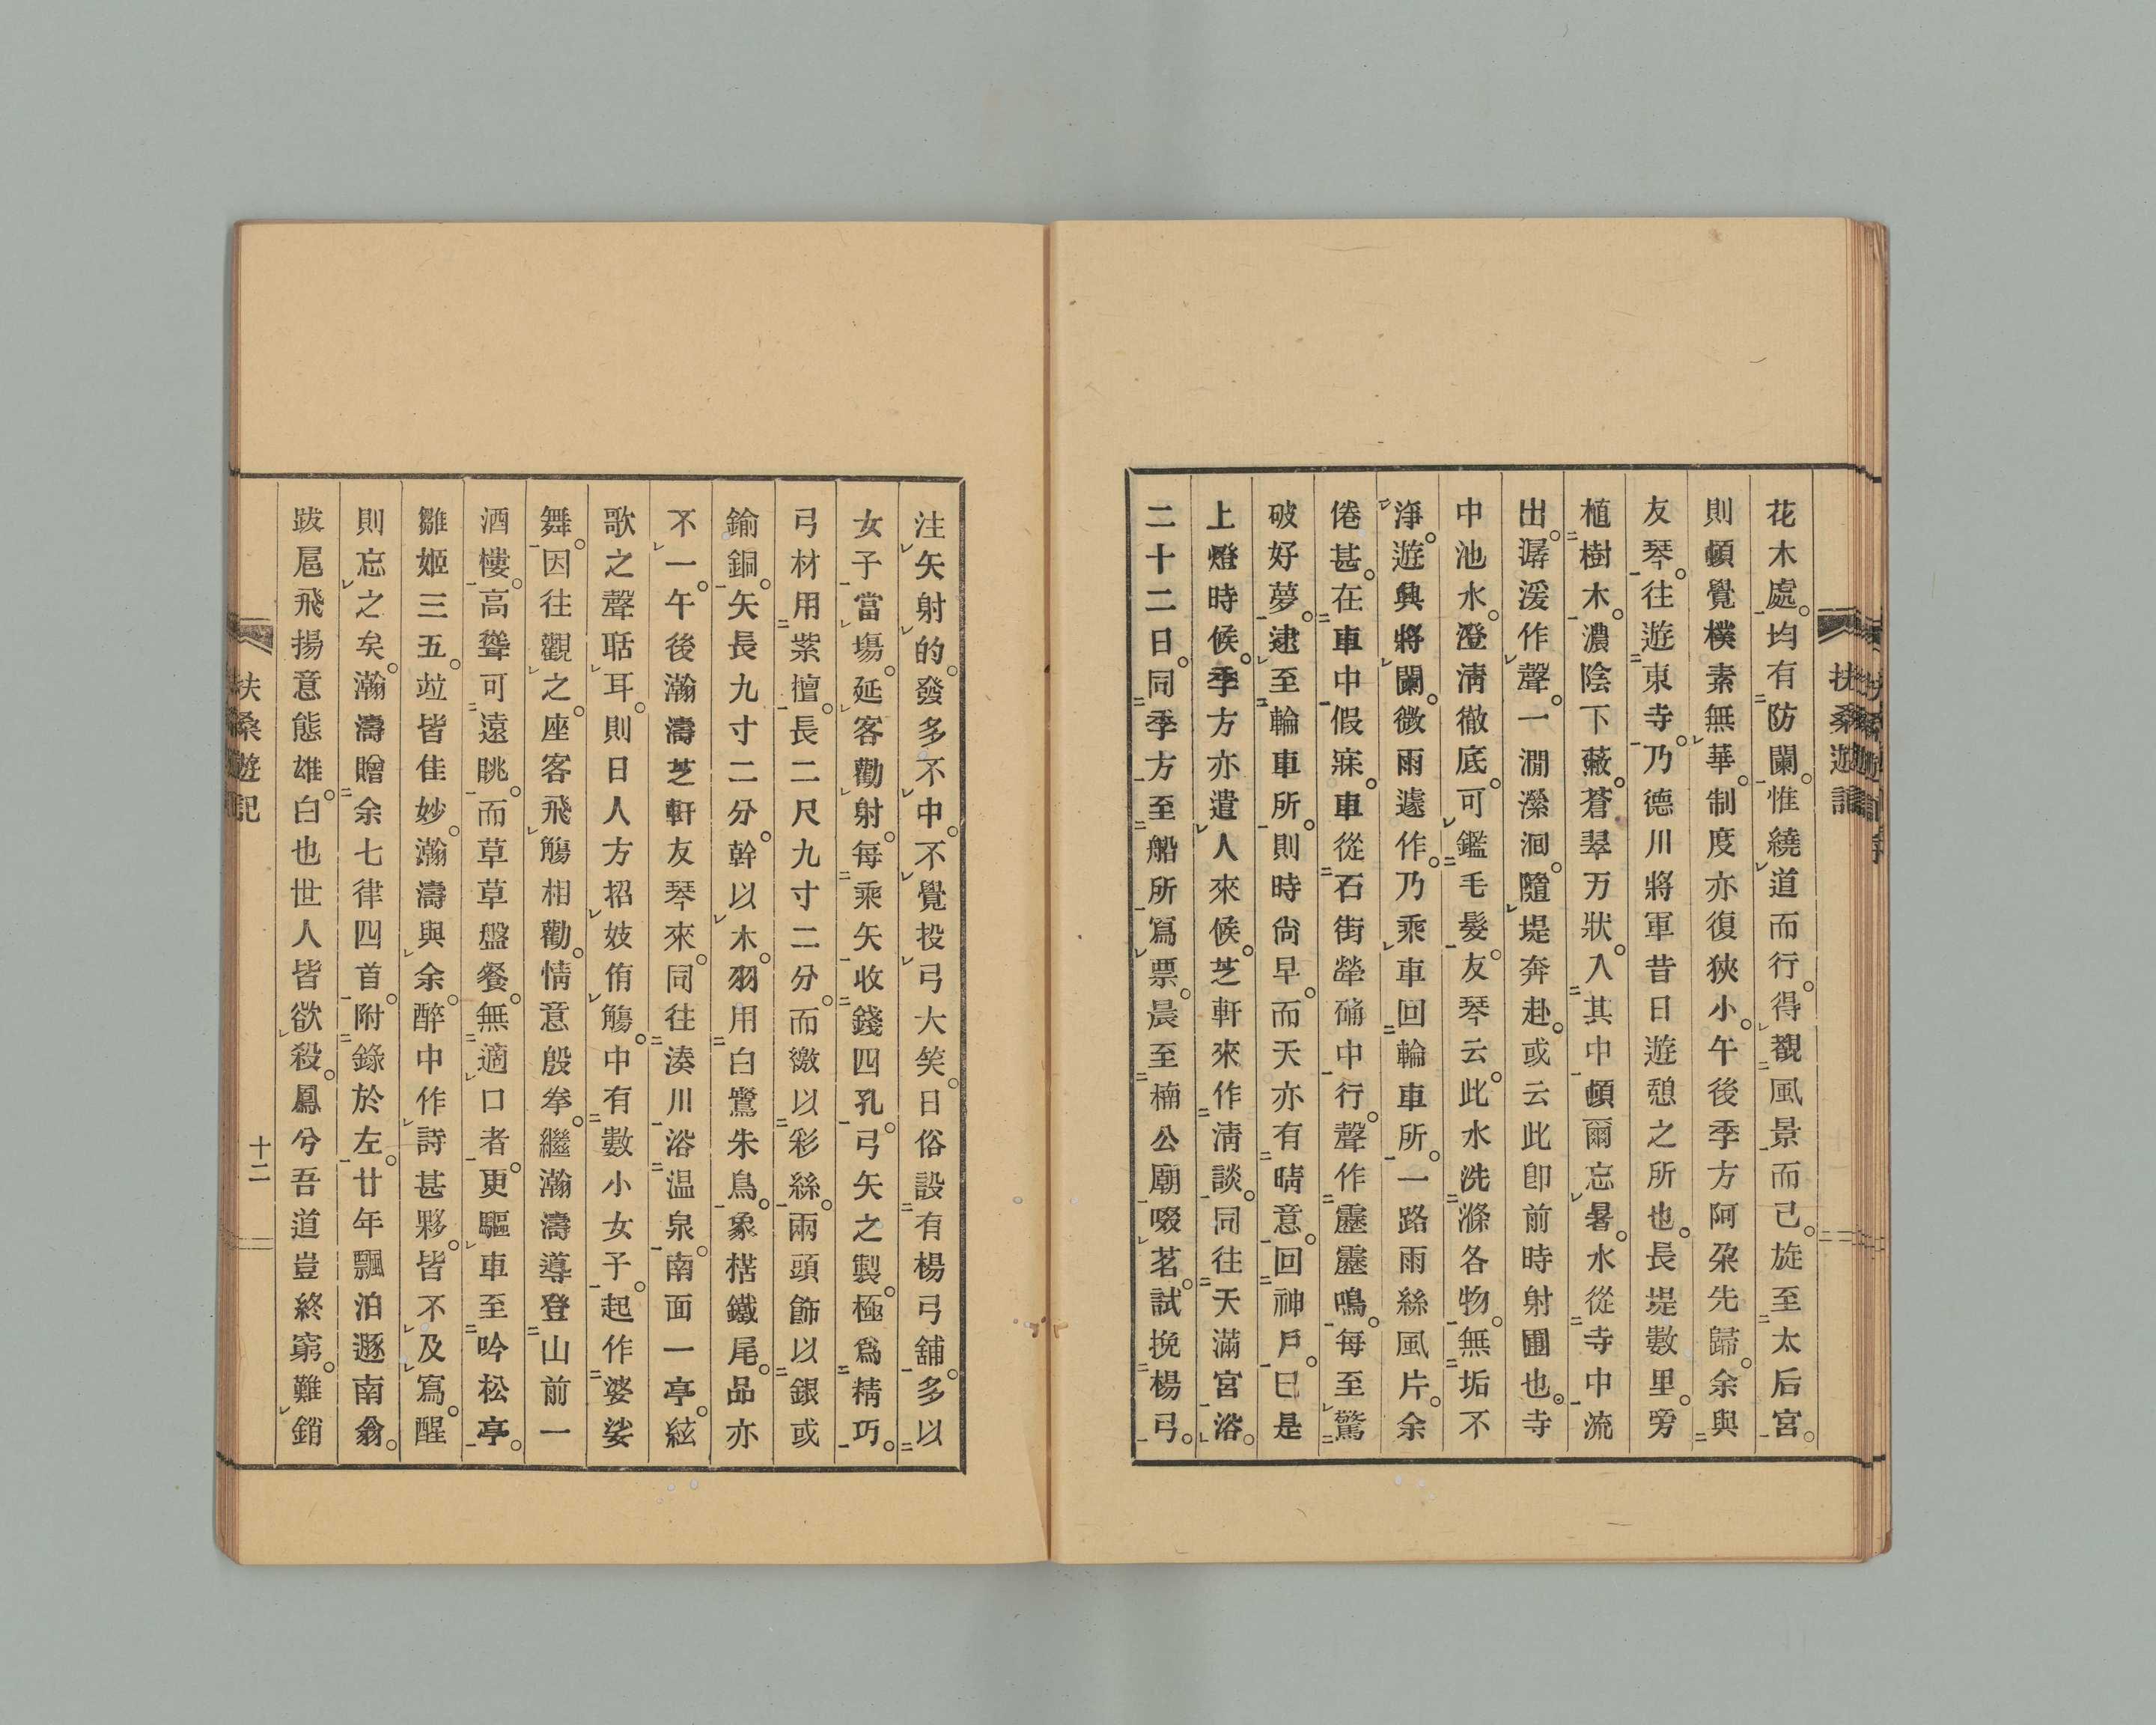 花木處。均有防闌。惟繞道而行。得覩風景而已。旋至太后宮。
則頓覺樸素無華。制度亦復狹小。午後季方阿朶先歸。余與
友琴。往遊東寺。乃德川將軍昔日遊憩之所也。長堤數里。旁
植樹木。濃陰下蔽。蒼翠万狀。入其中頓爾忘暑。水從寺中流
出。潺湲作聲。一澗瀠洄。隨堤奔赴。或云此卽前時射圃也。寺
中池水。澄淸徹底。可鑑毛髮。友琴云。此水洗滌各物。無垢不
淨。遊興將闌。微雨遽作。乃乘車回輪車所。一路雨絲風片。余
倦甚。在車中假寐。車從石街犖确中行。聲作靂靂鳴。每至驚
破好夢。逮至輪車所。則時尙早。而天亦有晴意。回神戶。已是
上燈時候。季方亦遣人來候。芝軒來作淸談。同往天滿宮浴。
二十二日。同季方至船所寫票。晨至楠公廟啜茗。試挽楊弓。
扶桑遊記
注矢射的。發多不中。不覺投弓大笑。日俗設有楊弓舖。多以
女子當塲。延客勸射。每乘矢收錢四孔。弓矢之製。極爲精巧。
弓材用紫擅。長二尺九寸二分。而繳以彩絲。兩頭飾以銀或
鍮銅。矢長九寸二分。幹以木。羽用白鷺朱鳥。象楛鐵尾。品亦
不一。午後瀚濤芝軒友琴來。同往湊川浴温泉。南面一亭。絃
歌之聲聒耳。則日人方招妓侑觴。中有數小女子。起作婆娑
舞。因往觀之。座客飛觴相勸。情意殷拳。繼瀚濤導登山前一
酒樓。高聳可遠眺。而草草盤餐。無適口者。更驅車至吟松亭。
雛姬三五。竝皆佳妙。瀚濤與余。醉中作詩甚夥。皆不及寫。醒
則忘之矣。瀚濤贈余七律四首。附錄於左。廿年飄泊遯南翁。
跋扈飛揚意態雄。白也世人皆欲殺。鳳兮吾道豈終窮。難銷
扶桑遊記
十二